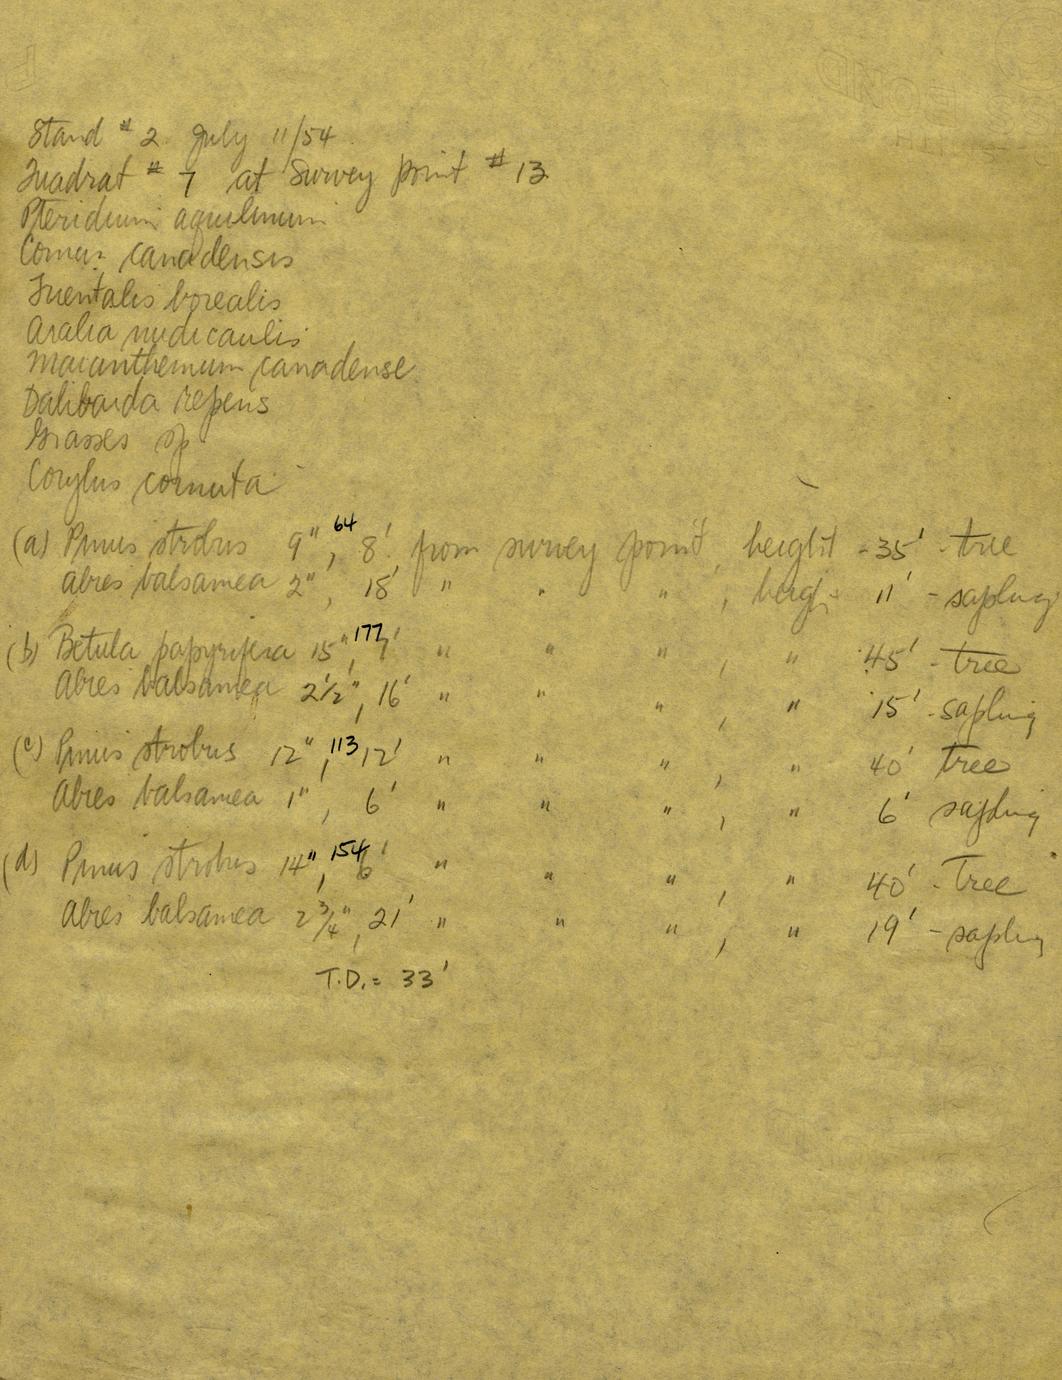 Stand # 2 July 11/54
Quadrat # 7 at Survey point # 13
Pteridium aquilinum
Cornus canadensis
Trientalis borealis
Aralia nudicaulis
Maianthemum canadense
Dalibarda repens
Grasses sp
Corylus cornuta
(a) Pinus strobus 9", 64 8' from survey point, height - 35' - tree
Abies balsamea 2", 18' " " " , heigh 11' - sapling
(b) Betula papyrifera 15", 177 7' " " " , " 45' - tree
Abies balsamea 2 1/2", 16' " " " , " 15' - sapling
(c) Pinus strobus 12", 113 12' " " " , " 40' tree
Abies balsamea 1", 6' " " " , " 6' sapling
(d) Pinus strobus 14", 154 6' " " " , " 40' - Tree
Abies balsamea 2 3/4", 21' " " " , " 19' - sapling
T.D. = 33'